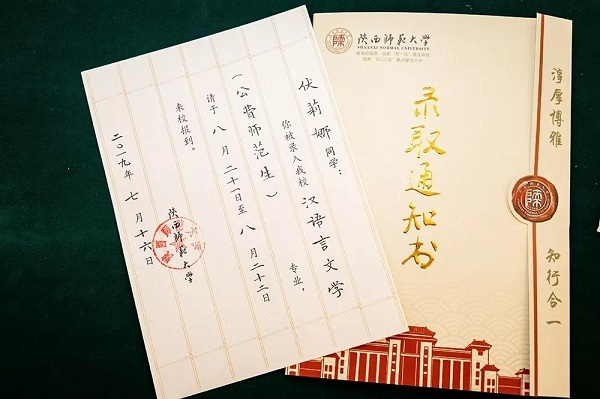 伏莉娜同学：
你被录入我校汉语言文学专业，
（公费师范生）
请于八月二十一日至八月二十二日
来校报到。
陕西师范大学
二〇一九年七月十六日
陕西师范大学
SHAANXI NORMAL UNIVERSITY
国家“211工程”重点建设大学
录取通知书
淳厚博雅
知行合一